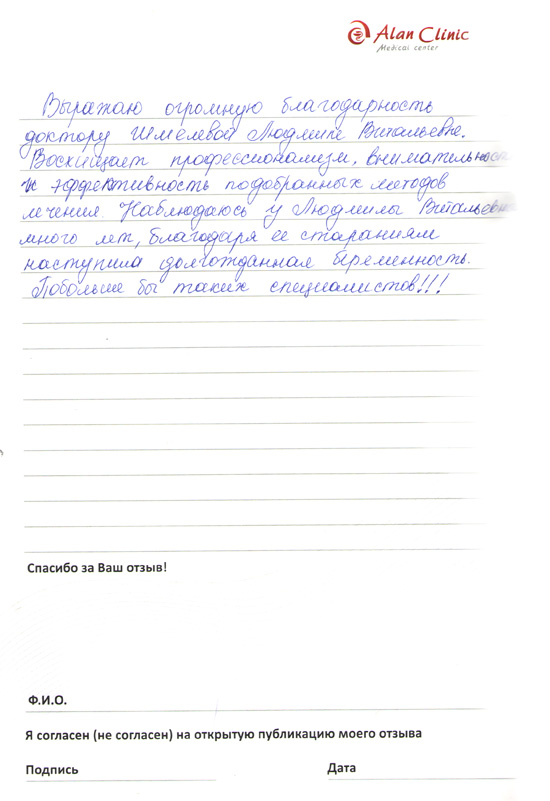 Alan Clinic
Medical center
Выражаю огромную благодарность
доктору Шмелевой Людмиле Витальевне.
Восхищает профессионализм, внимательность
и эффективность подобранных методов
лечения Наблюдаюсь у Людмилы Витальевны
много лет, благодаря ее стараниям
наступила долгожданная беременность.
Побольше бы таких специалистов!!!
Спасибо за Ваш отзыв!
Ф.И.О.
Я согласен (не согласен) на открытую публикацию моего отзыва
Подпись Дата